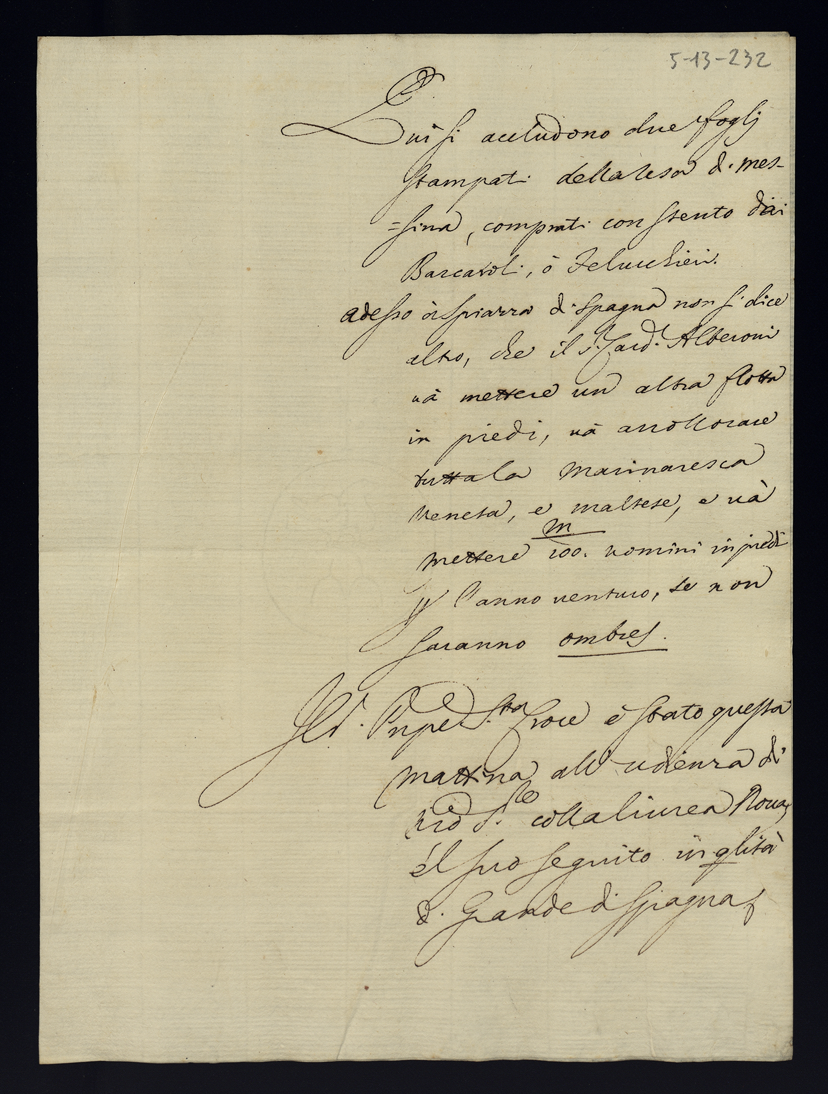 5-13-232
Qui si accludono due foglj
stampati della resa di Mes-
=sina, comprati con stento dai
Barcaroli, ò Feluchieri.
adesso à piazza di Spagna non si dice
altro, che il S. Card. Alberoni
và mettere un altra flotta
in piedi, và arollorare
tutta la marinaresca
Veneta, e maltese, e và
m
mettere 100. uomini in piedi
p l'anno venturo, se non
saranno ombres.
Il S. Pnpe di S.ta Croce è stato questa
mattina all'udienza di
colla livrea Rossa,
è 'l suo seguito in qlità
di Grande di Spagna